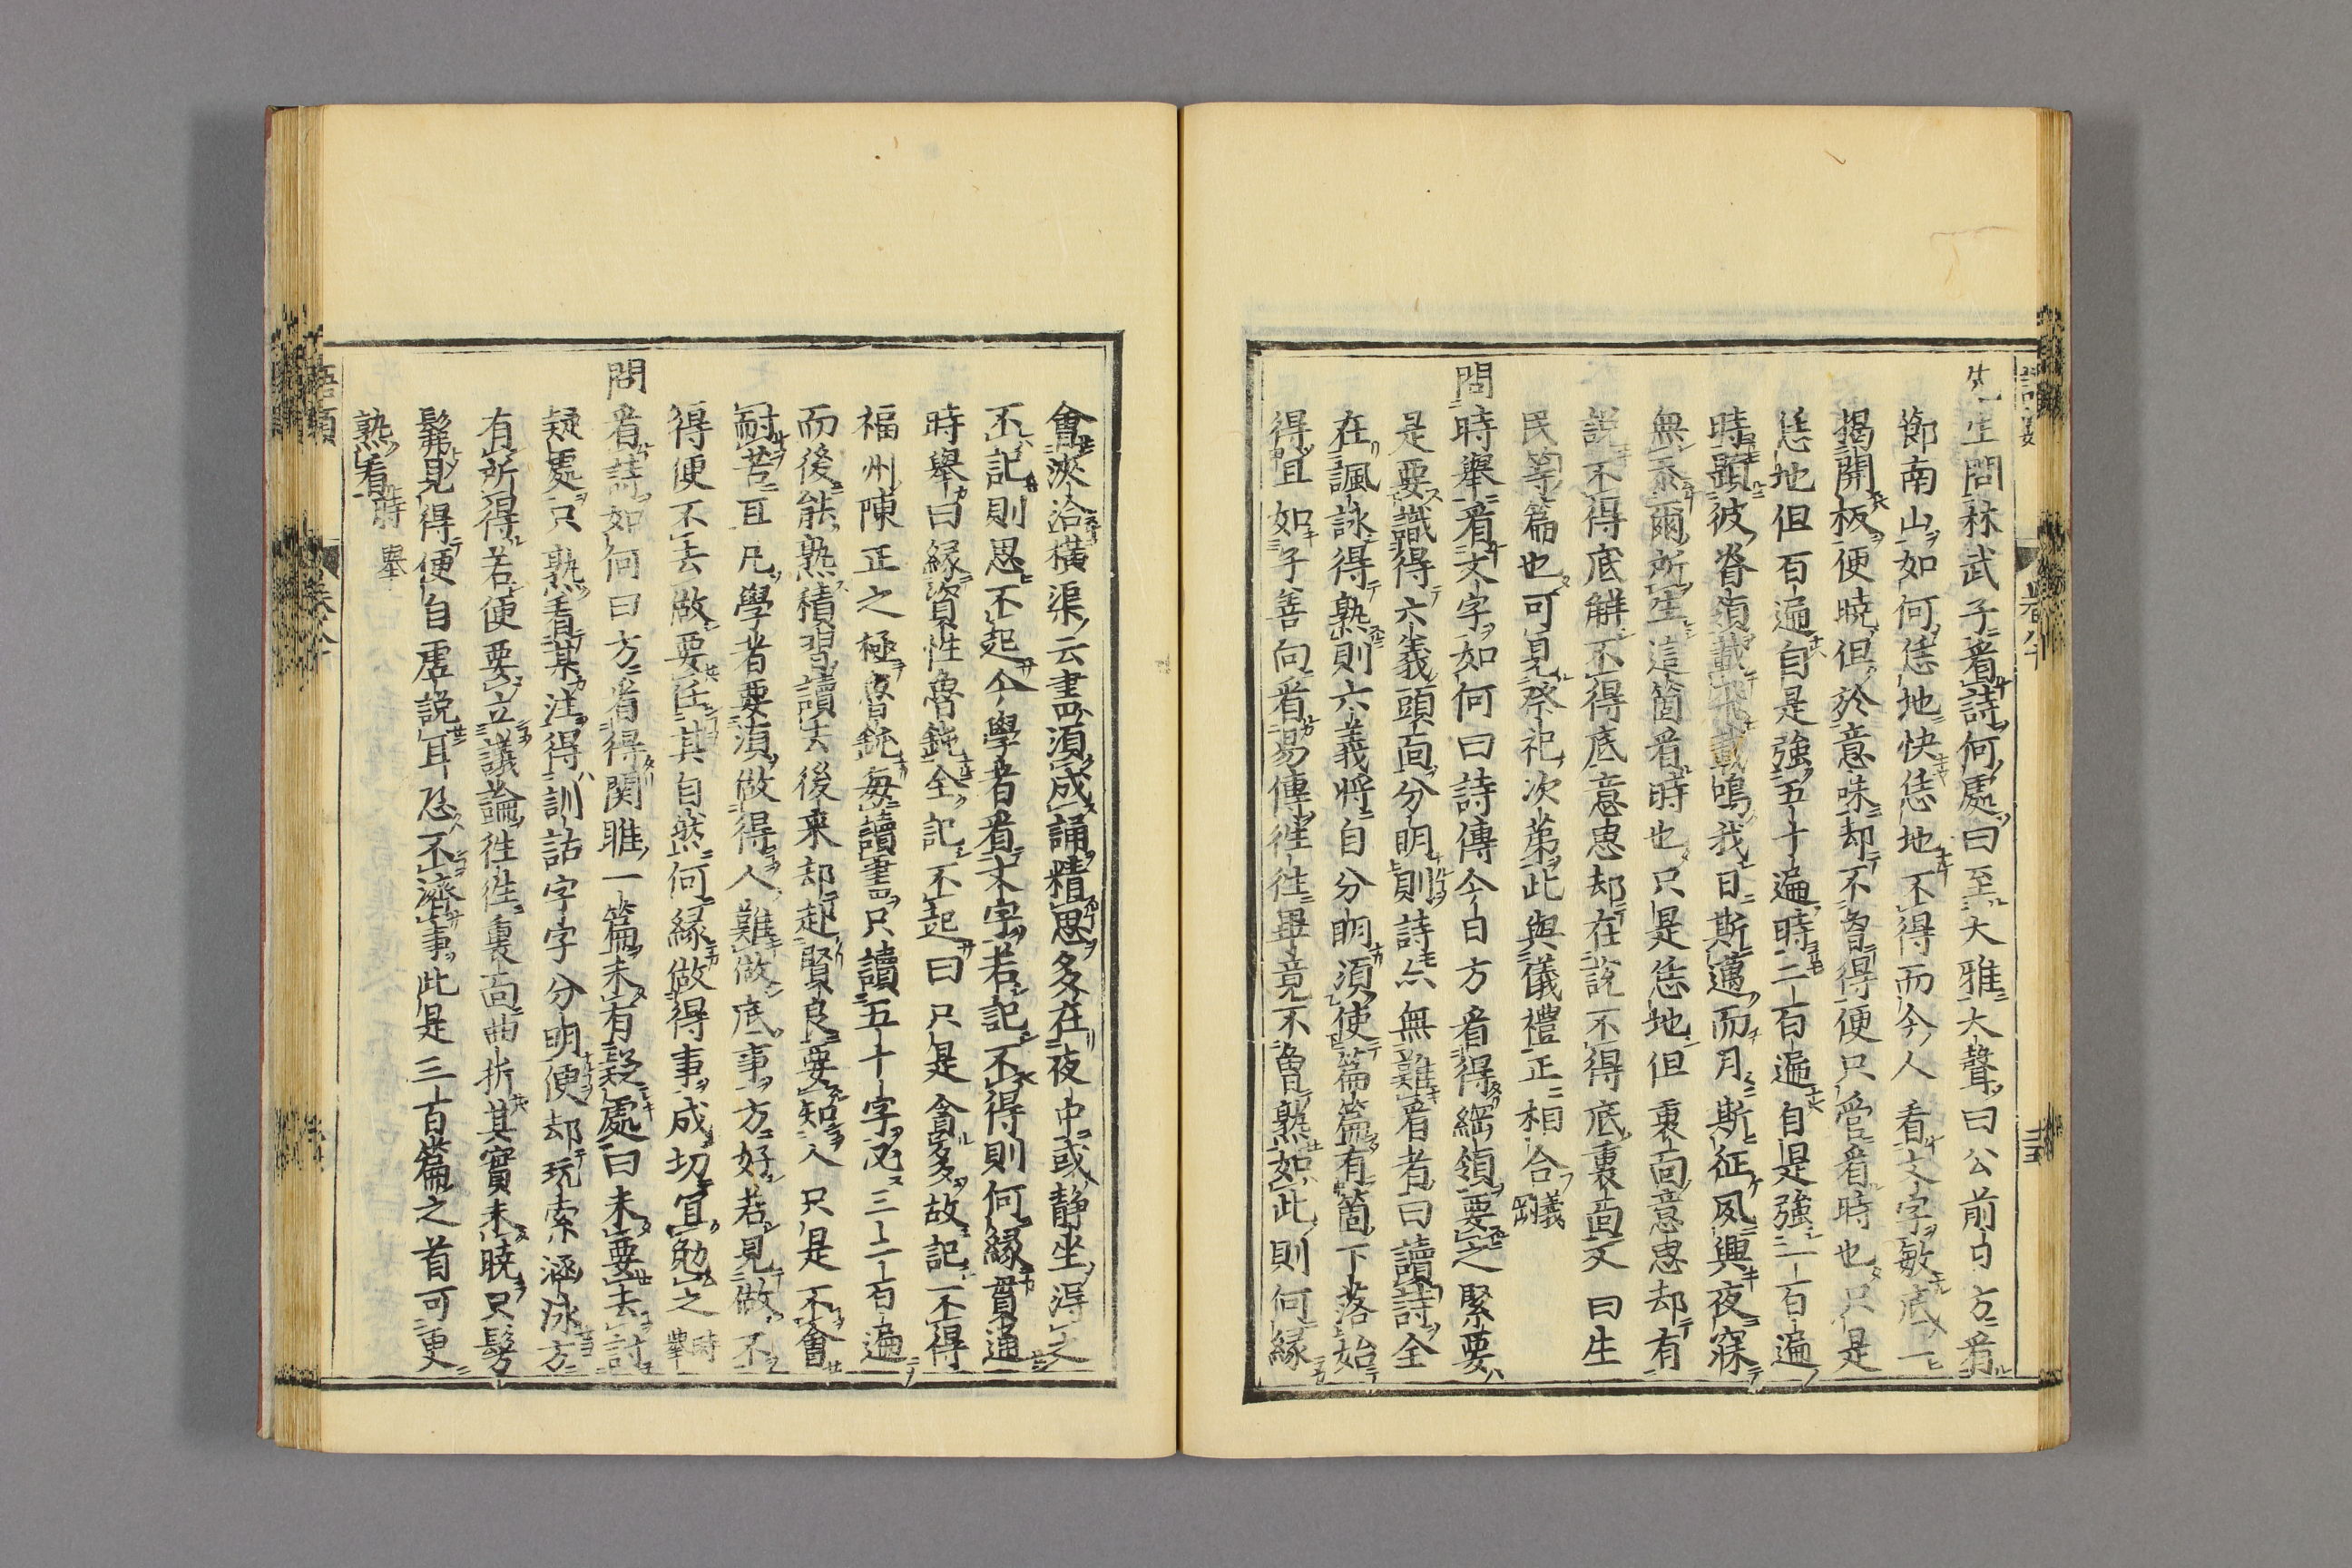 先生問林武子看詩何處曰至大雅大聲曰公前日方看
節南山如何恁地快恁地不得而今人看文字敏底一
揭開板便曉但於意味却不曾得便只管看時也只是
恁地但百遍自是強五十遍時二百遍自是強一百遍
時題彼脊領載飛載鳴我日斯邁而月斯征夙興夜寐
無忝爾所生這箇看時也只是恁地但裏面意思却有
說不得底解不得底意思却在說不得底裏面又曰生
民等篇也可見祭祀次第此與儀禮正相合義剛
問時舉看文字如何曰詩傳今日方看得綱領要之緊要
是要識得六義頭面分明則詩亦無難看者曰讀詩全
在諷詠得熟則六義將自分明須使篇篇有箇下落始
得且如子善向看易傳徃徃畢竟不曾熟如此則何縁
會浹洽橫渠云書須成誦精思多在夜中或靜坐得之
不記則思不起今學者看文字若記不得則何縁貫通
時舉曰縁資性魯鈍全記不起曰只是貪多故記不得
福州陳正之極魯鈍每讀書只讀五十字必三二百遍
而後能熟積習讀去後来却赴賢良要知人只是不會
耐苦耳凡學者要須做得人難做底事方好若見做不
得便不去做要任其自然何縁做得事成切宜勉之時舉
問看詩如何曰方看得関雎一篇未有疑處曰未要去討
疑處只熟看某注得訓詁字字分明便却玩索涵泳方
有所得若便要立議論徃徃裏面曲折其實未曉只髣
髴見得便自虛說耳恐不濟事此是三百篇之首可更
熟看時舉
語類
卷八十